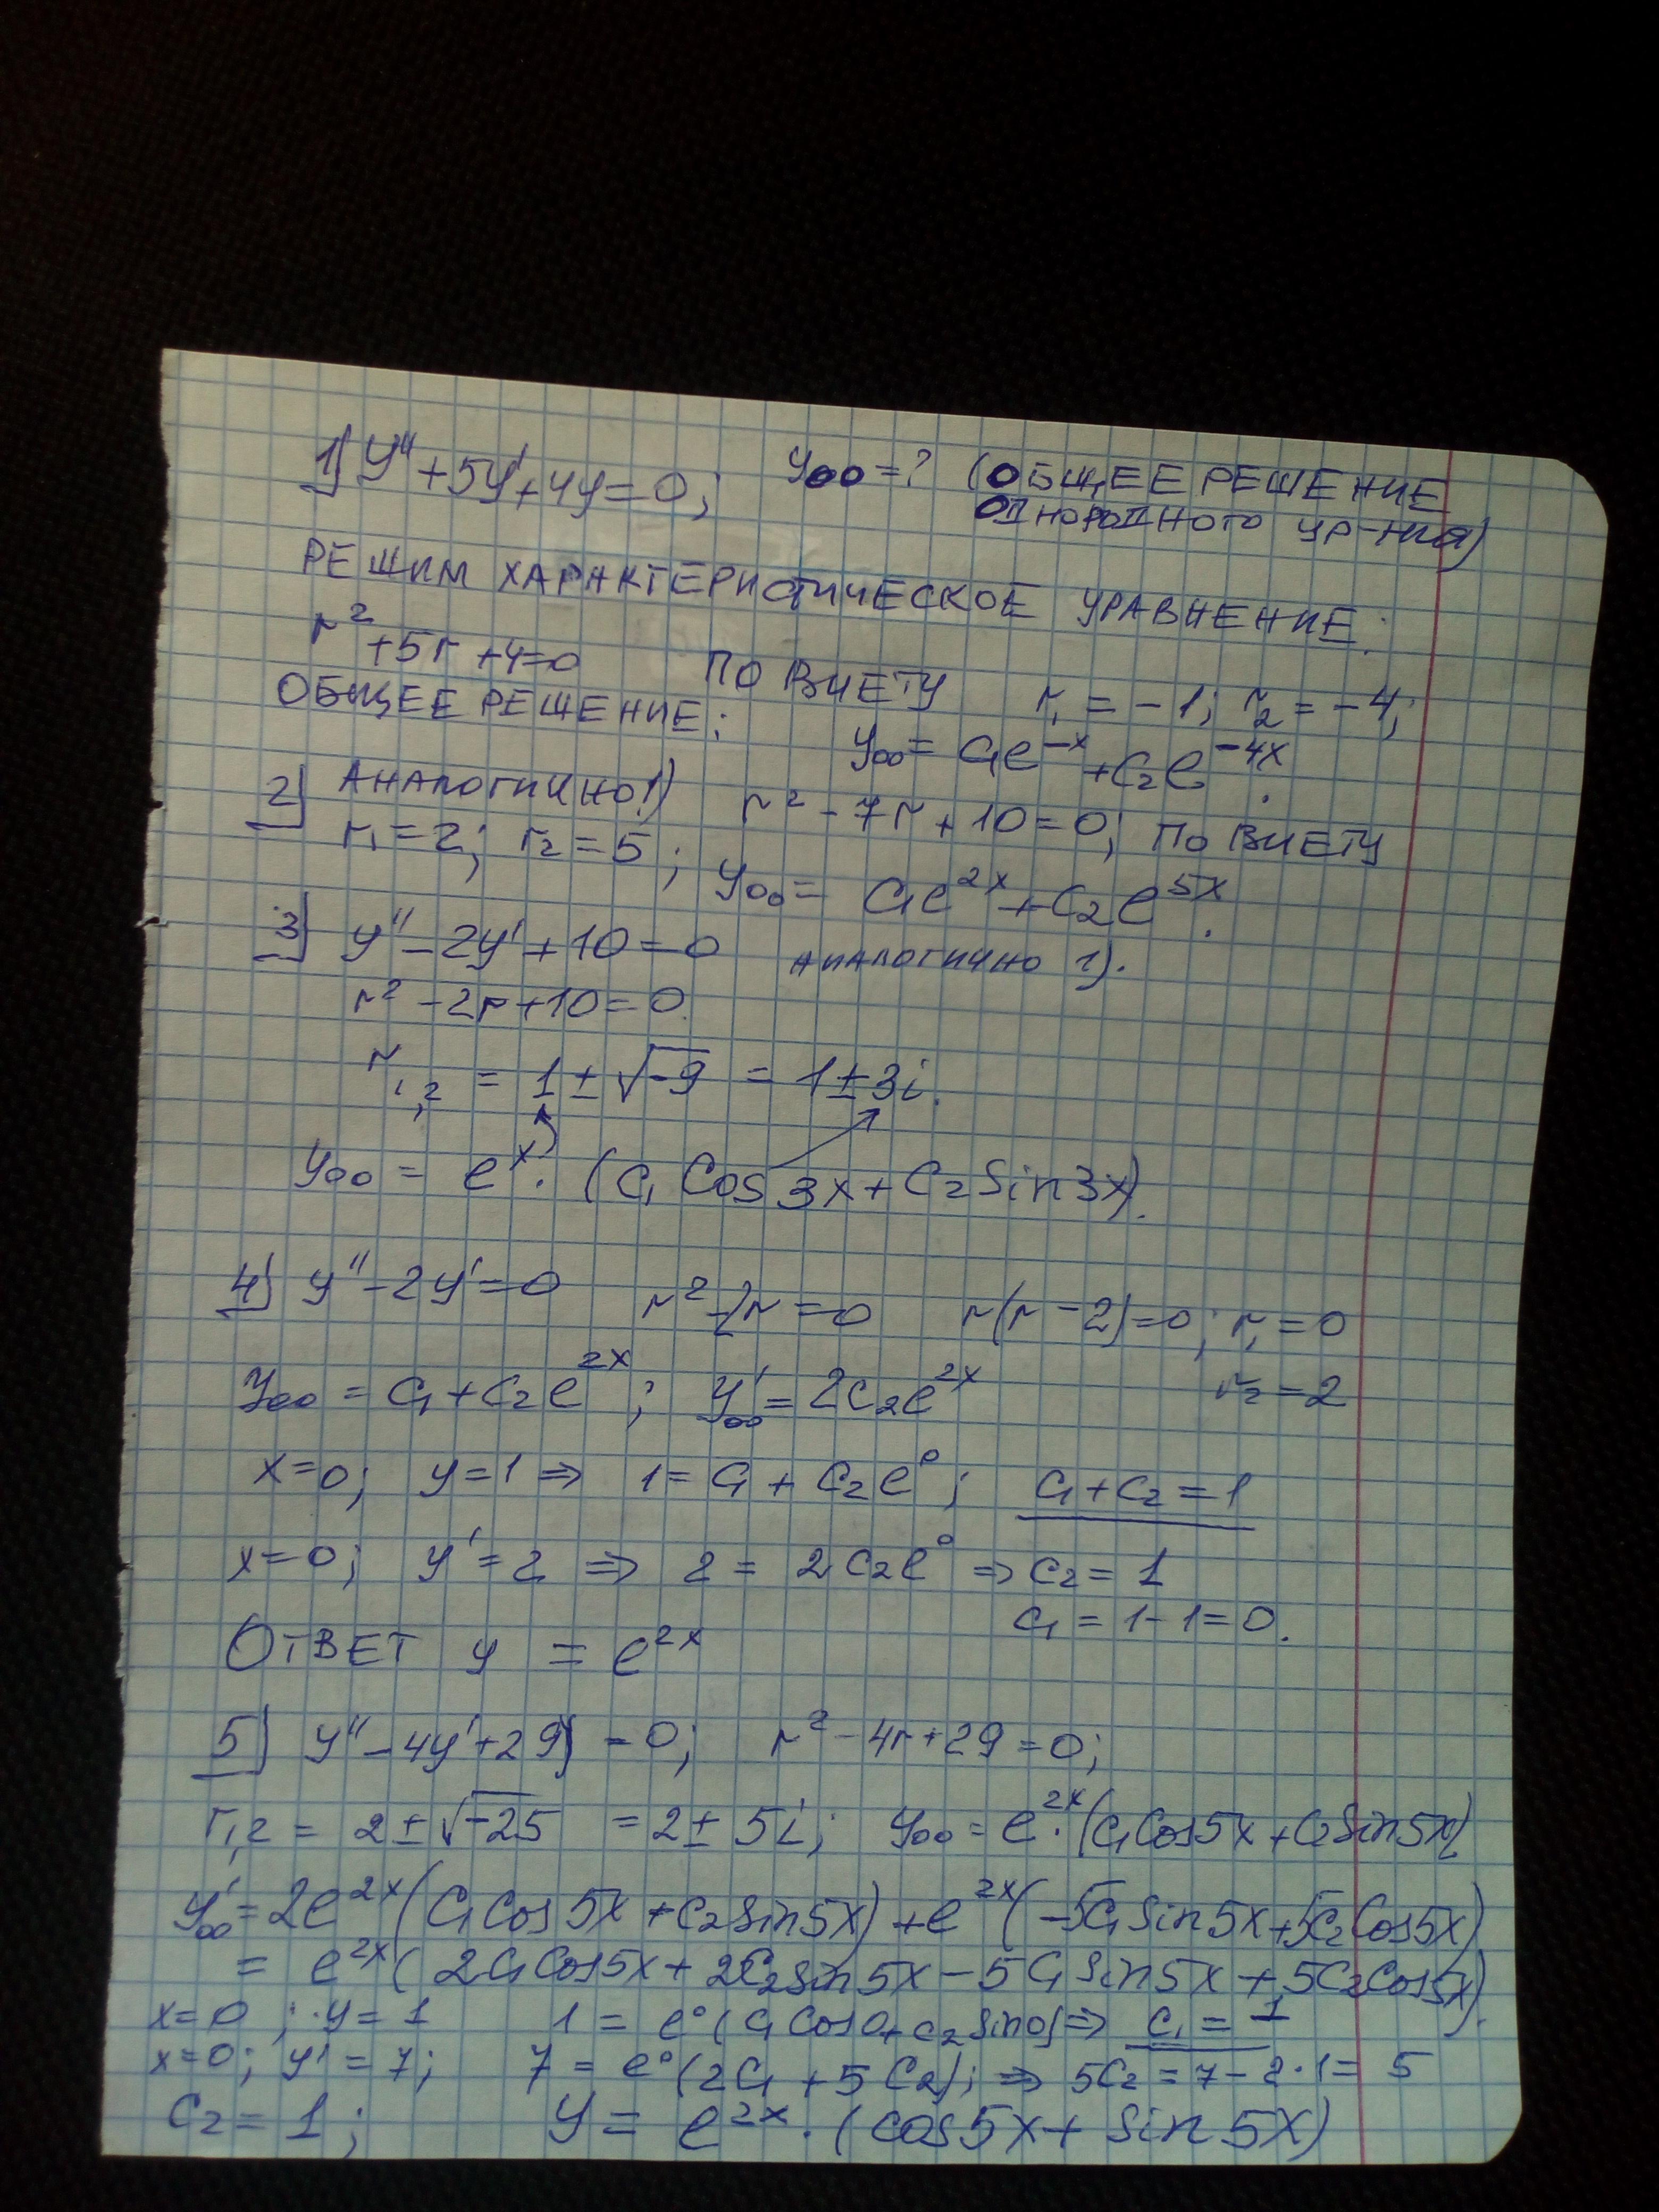 1) y'' + 5y' + 4y = 0; yоо = ? (ОБЩЕЕ РЕШЕНИЕ
ОДНОРОДНОГО УР-НИЯ)
РЕШИМ ХАРАКТЕРИСТИЧЕСКОЕ УРАВНЕНИЕ:
r² + 5r + 4 = 0 ПО ВИЕТУ r₁ = -1; r₂ = -4;
ОБЩЕЕ РЕШЕНИЕ: yоо = C₁e^{-x} + C₂e^{-4x}.
2) АНАЛОГИЧНО 1) r² - 7r + 10 = 0; ПО ВИЕТУ
r₁ = 2; r₂ = 5; yоо = C₁e^{2x} + C₂e^{5x}.
3) y'' - 2y' + 10 = 0 АНАЛОГИЧНО 1).
r² - 2r + 10 = 0.
r₁,₂ = 1 ± √-9 = 1 ± 3i.
yоо = e^x · (C₁ Cos 3x + C₂ Sin 3x).
4) y'' - 2y' = 0 r² - 2r = 0 r(r - 2) = 0; r₁ = 0
r₂ = 2
yоо = C₁ + C₂e^{2x}; y'оо = 2C₂e^{2x}
x = 0; y = 1 ⇒ 1 = C₁ + C₂e⁰; C₁ + C₂ = 1
x = 0; y' = 2 ⇒ 2 = 2C₂e⁰ ⇒ C₂ = 1
C₁ = 1 - 1 = 0.
ОТВЕТ y = e^{2x}
5) y'' - 4y' + 29y = 0; r² - 4r + 29 = 0;
r₁,₂ = 2 ± √-25 = 2 ± 5i; yоо = e^{2x} · (C₁Cos5x + C₂Sin5x)
y'оо = 2e^{2x}(C₁Cos 5x + C₂Sin5x) + e^{2x}(-5C₁Sin5x + 5C₂Cos5x)
= e^{2x}(2C₁Cos5x + 2C₂Sin5x - 5C₁Sin5x + 5C₂Cos5x).
x = 0; y = 1 1 = e⁰(C₁Cos0 + C₂Sin0) ⇒ C₁ = 1
x = 0; y' = 7; 7 = e⁰(2C₁ + 5C₂); ⇒ 5C₂ = 7 - 2·1 = 5
C₂ = 1; y = e^{2x} · (cos5x + Sin 5x)